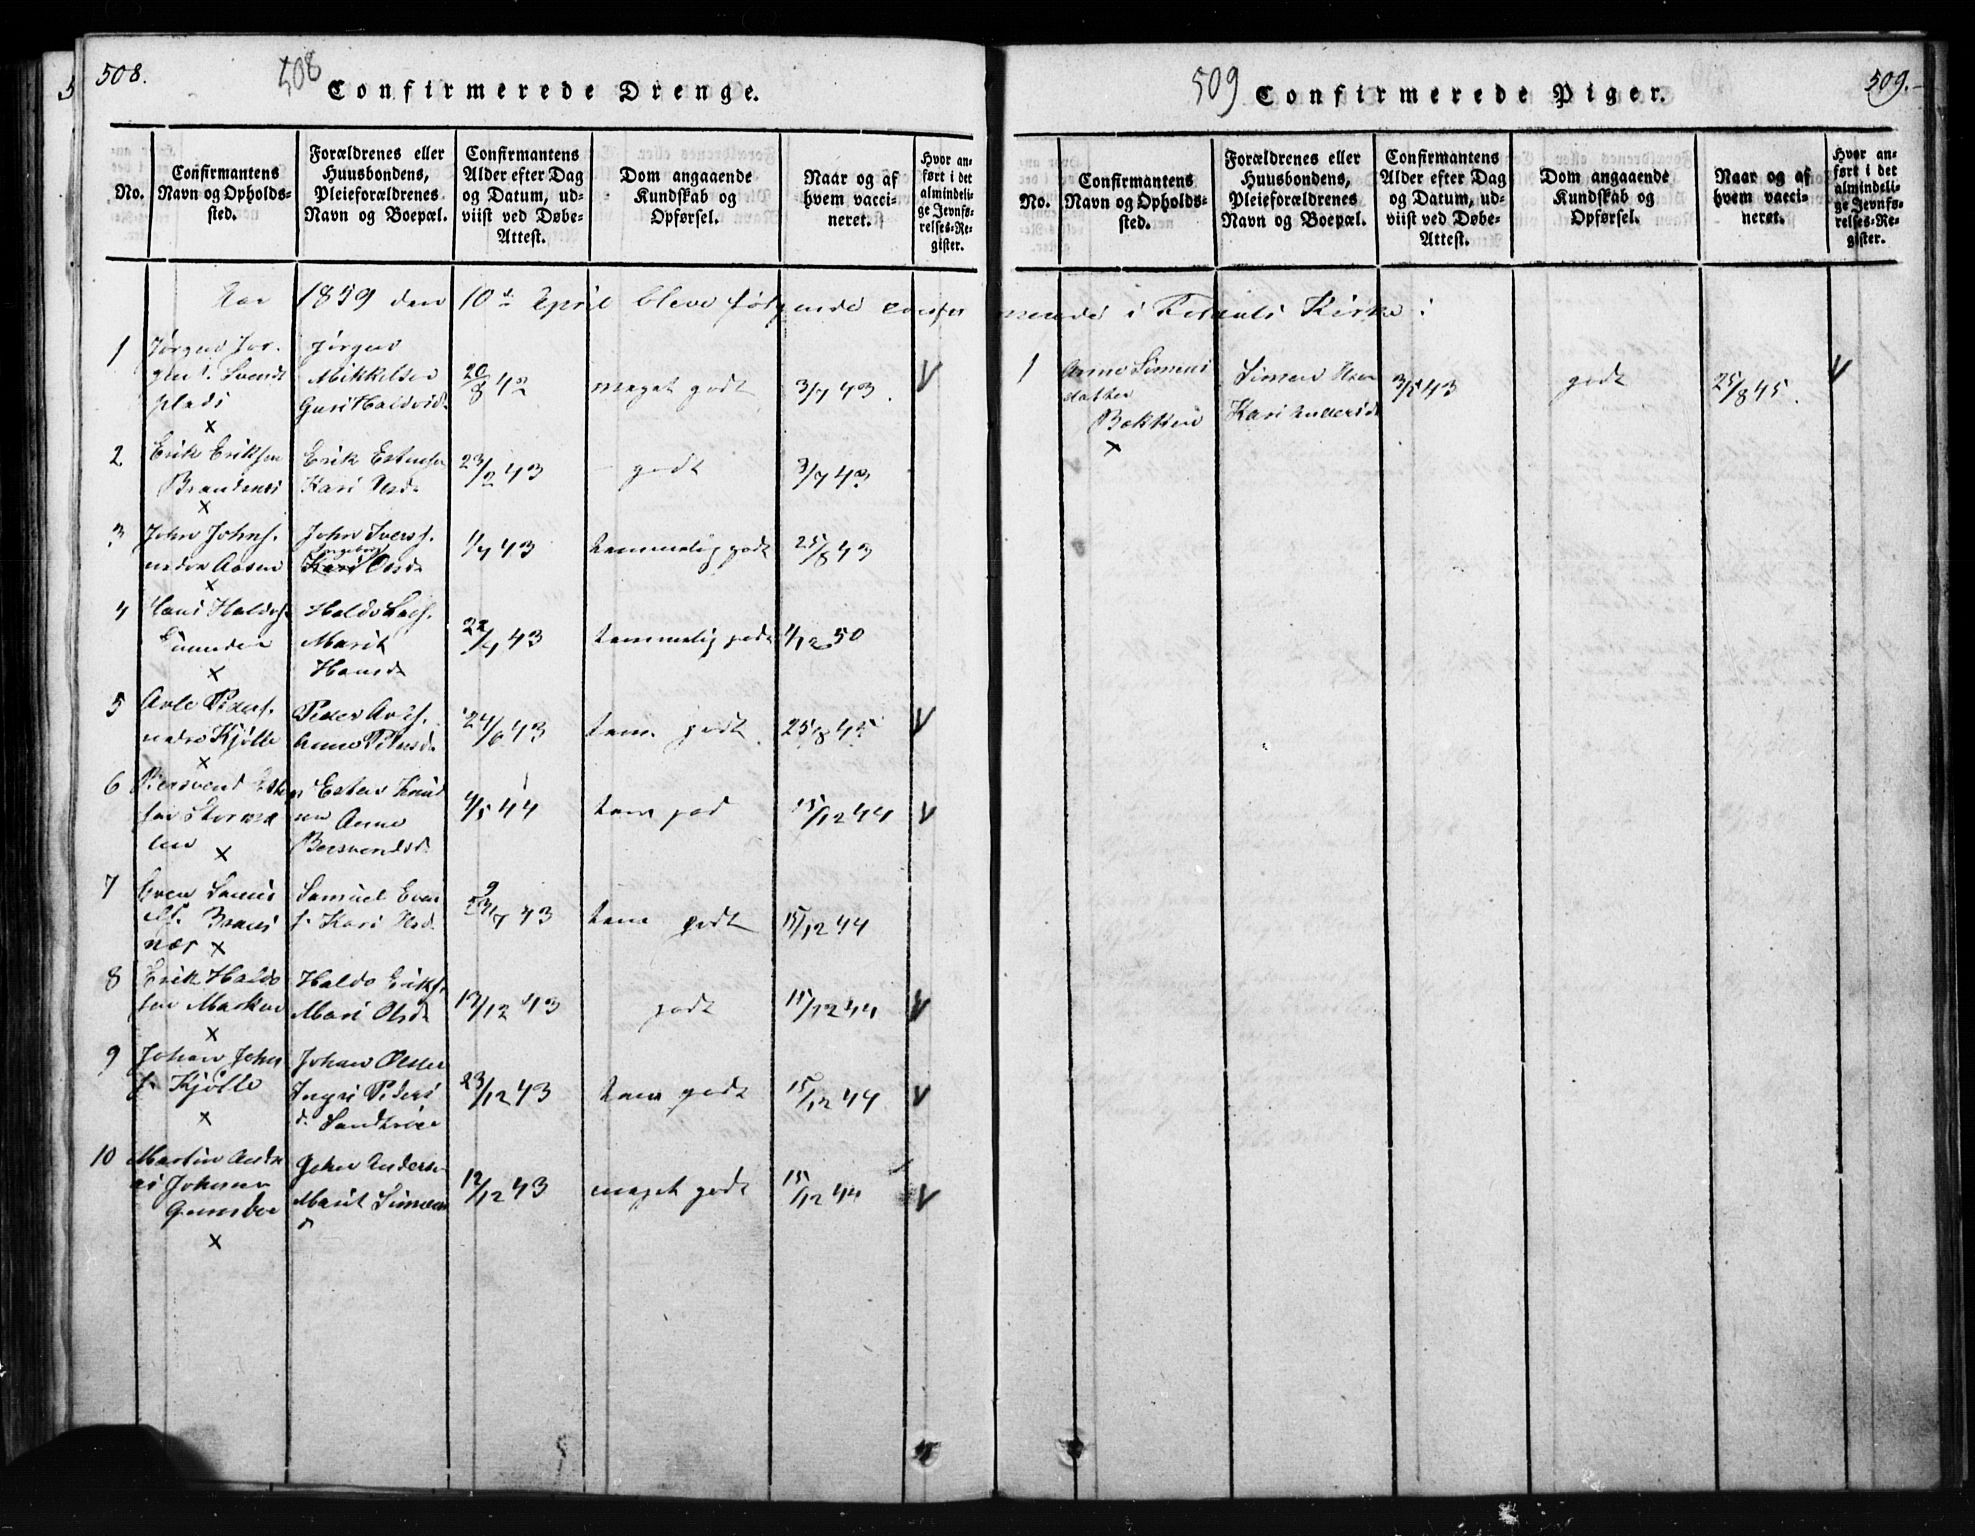 508.
508
Confirmerede Drenge.
No.
Confirmantens
Navn og Opholds-
sted.
Forældrenes eller
Huusbondens,
Pleieforældrenes
Navn og Boepæl.
Confirmantens
Alder efter Dag
og Datum, ud-
viist ved Døbe-
Attest.
Dom angaaende
Kundskab og
Opførsel.
Naar og af
hvem vacci-
neret.
Hvor an-
ført i det
almindeli-
ge Jevnfø-
relses-Re-
gister.
Aar 1859 den 10de April bleve følgende confir
1
Jørgen Jør-
gens. Svends
plads
x
Jørgen
Mikkelsen
Guri Haldvd.
20/8 42
meget godt
3/7 43.
V
2
Erik Eriksen
x
Erik Estensen
Kari
23/2 43
godt
3/7 43
3
John Johns.
nedre Aasen
x
John Ivers.
Ingeborg
Kari Olsd.
1/7 43
temmelig godt
25/8 43
4
Hans Haldos.
x
Haldo
Marit
Hansd.
22/4 43
temmelig godt
1/12 50
5
Peders.
nedre Kjølle
x
Peder
Anne Petersd.
24/6 43
tem. godt
25/8 45
V
6
Bersvend Esten
sen Stormo
en x
Esten Knud
sen Anne
Bersvendsd.
4/5 44
tem god
15/12 44
V
7
Even Samu
els.
x
Samuel Even
s. Kari
7 43
tem godt
15/12 44
8
Erik Haldo
sen Moen
x
Haldo Eriks.
Mari Olsd.
17/12 43
godt
15/12 44
V
9
Johan Johan
s. Kjølle
x
Johan Olsen
Ingri Peders
d.
23/12 43
tem godt
15/12 44
V
10
Martin Andre
as Johnsen
x
John Anders.
Marit Simens
d
12/12 43
meget godt
15/12 44
V
509
Confirmerede Piger.
509.
No.
Confirmantens
Navn og Opholds-
sted.
Forældrenes eller
Huusbondens,
Pleieforældrenes
Navn og Boepæl.
Confirmantens
Alder efter Dag
og Datum, ud-
viist ved Døbe-
Attest.
Dom angaaende
Kundskab og
Opførsel.
Naar og af
hvem vacci-
neret.
Hvor an-
ført i det
almindeli-
ge Jevnfø-
relses-Re-
gister.
merede i Kirke:
1
Anne Simens
datter
Bakken
x
Simen
Kari Andersd.
3/5 43
godt
25/8 45.
V